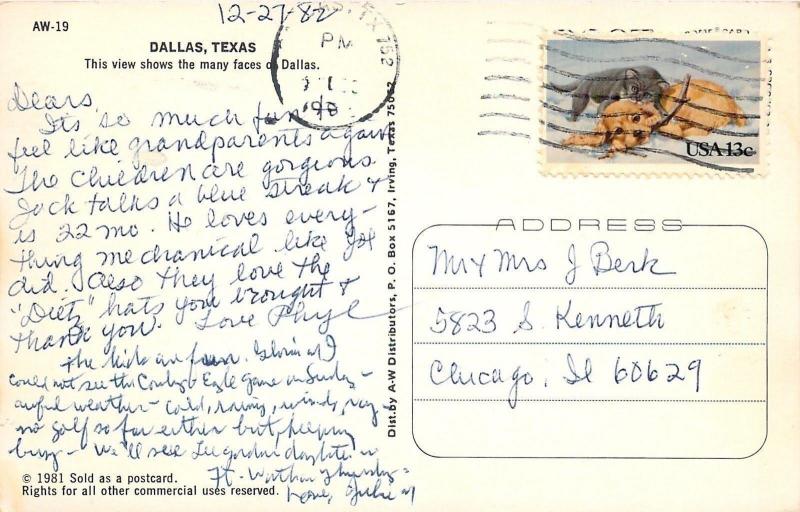 12-27-82
AW-19
DALLAS, TEXAS
This view shows the many faces of Dallas.
TX 752
PM
USA 13c
Dears,
Its so much fun
feel like grandparents again
The children are gorgeous.
Jack talks a blue streak +
is 22 mo. He loves every-
thing mechanical like
did. Also they love the
"Dietz" hats you brought +
thank you. Love Phyl
The kids are fun. I
could not see the Cowboy Eagle game on Sunday -
awful weather - cold, rainy, windy,
no golf so far either but keeping
busy - We'll see daughter in
Ft.
Love,
© 1981 Sold as a postcard.
Rights for all other commercial uses reserved.
Dist. by A-W Distributors, P. O. Box 5167, Irving, Texas 75062
ADDRESS
Mr + Mrs J Berk
5823 S. Kenneth
Chicago, Il 60629